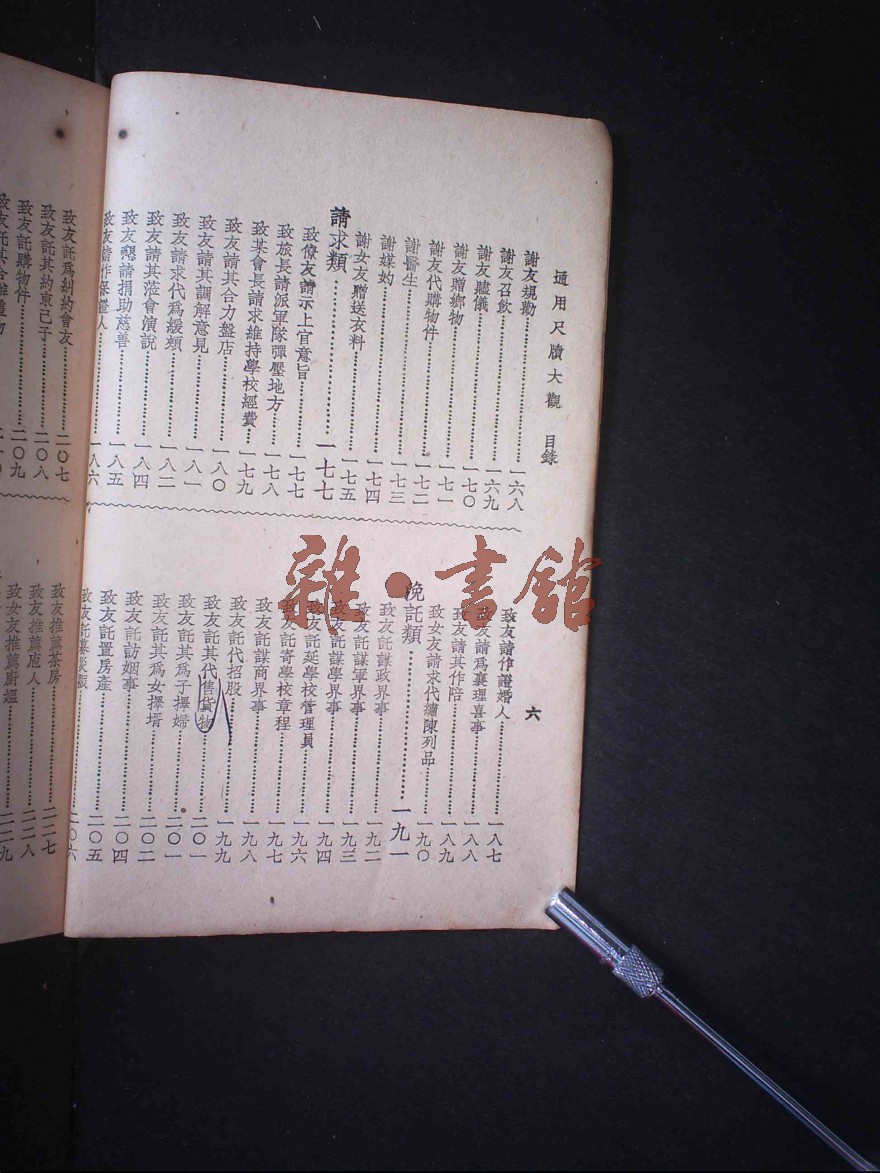 通用尺牘大觀 目錄 六
謝友規勸……一六八
謝友召飲……一六九
謝友贐儀……一七〇
謝友贈鄉物……一七一
謝友代購物件……一七二
謝醫生……一七三
謝媒妁……一七四
謝女友贈送衣料……一七五
請求類……一七七
致僚友請示上官意旨……一七七
致旅長請派軍隊彈壓地方……一七八
致某會長請求維持學校經費……一七九
致友請其合力盤店……一八〇
致友請其調解意見……一八一
致友請求代爲緩頰……一八二
致友請其蒞會演說……一八四
致友懇請捐助慈善……一八五
致友請作保證人……一八六
致友請作證婚人……一八七
致友請爲襄理喜事……一八八
致友請其作陪……一八九
致女友請求代繡陳列品……一九〇
託類……一九一
致友託謀政界事……一九二
致友託謀軍界事……一九三
致友託謀學界事……一九四
致友託延學校管理員……一九六
致友託寄學校章程……一九七
致友託謀商界事……一九八
致友託代招股……一九九
致友託其代售貨物……二〇一
致友託其爲子擇婦……二〇一
致友託其爲女擇壻……二〇二
致友託訪姻事……二〇四
致友託置房產……二〇五
致友託……二〇六
致友託爲糾約會友……二〇七
致友託其約束己子……二〇八
致友託購物件……二〇九
致友託其合辦禮物……二一〇
致友推薦茶房……二二七
致友推薦庖人……二二八
致女友推薦廚媼……二二九
雜·書館